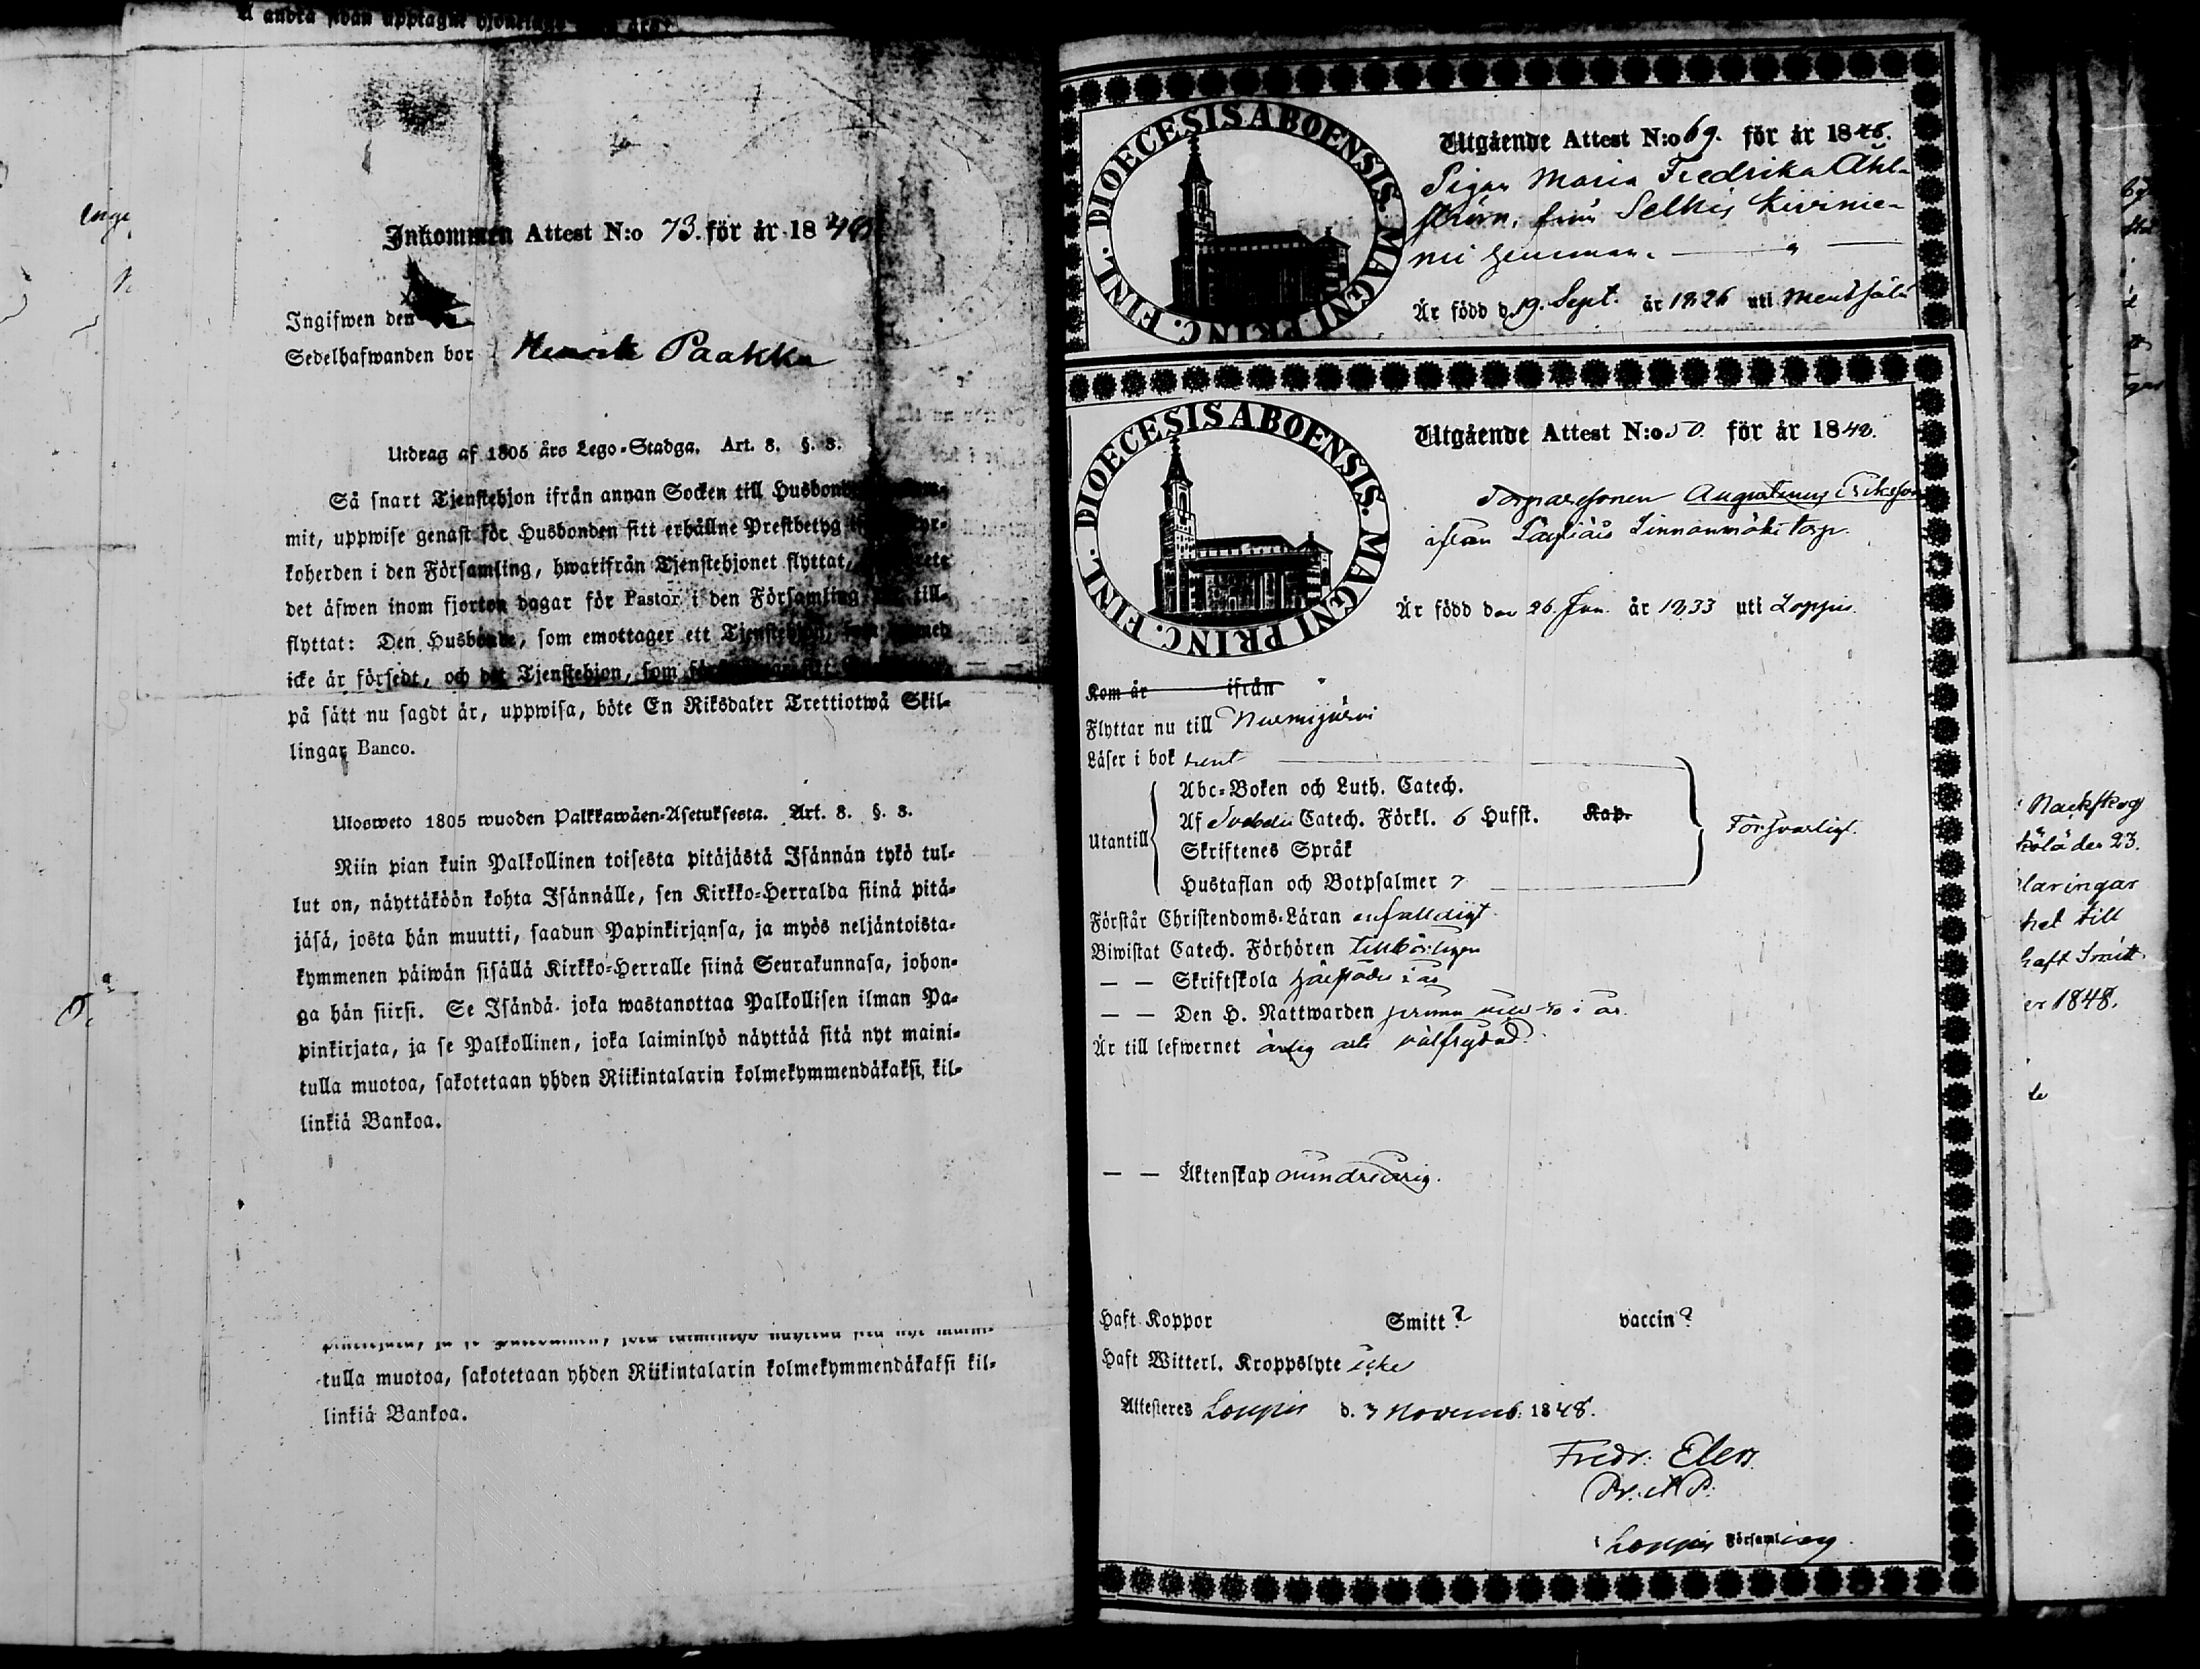 Inkommen Attest N:o 73. för år 1848
Ingifwen den
Sedelhafwanden bor Henrik Paakka
Utdrag af 1805 års Lego-Stadga. Art. 3. §. 3.
Så snart Tjenstehjon ifrån annan Socken till
mit, uppwise genast för Husbonden sitt erhållne Prestbetyg
koherden i den Församling, hwarifrån Tjenstehjonet flyttat,
det äfwen inom fjorton dagar för Pastor i den Församling till-
flyttat: Den Husbonde, som emottager ett
icke är försedt, och det Tjenstehjon, som
på sätt nu sagdt är, uppwisa, böte En Riksdaler Trettiotwå Skil-
lingar Banco.
Ulosweto 1805 wuoden Palkkawäen-Asetuksesta. Art. 3. §. 3.
Niin pian kuin Palkollinen toisesta pitäjästä Isännän tykö tul-
lut on, näyttäköön kohta Isännälle, sen Kirkko-Herralda siinä pitä-
jäsä, josta hän muutti, saadun Papinkirjansa, ja myös neljäntoista-
kymmenen päiwän sisällä Kirkko-Herralle siinä Seurakunnasa, johon-
ga hän siirsi. Se Isändä joka wastanottaa Palkollisen ilman Pa-
pinkirjata, ja se Palkollinen, joka laiminlyö näyttää sitä nyt maini-
tulla muotoa, sakotetaan yhden Riikintalarin kolmekymmendäkaksi kil-
linkiä Bankoa.
tulla muotoa, sakotetaan yhden Riikintalarin kolmekymmendäkaksi kil-
linkiä Bankoa.
DIOECESIS ABOENSIS. MAGNI PRINC. FINL.
Utgående Attest N:o 69. för år 1848.
Pigan Maria Fredrika Ahl-
ström, från Selkis Kivinie-
mi hemman.
Är född d. 19. Sept. år 1826 uti Mentsälä
DIOECESIS ABOENSIS. MAGNI PRINC. FINL.
Utgående Attest N:o 50. för år 1848.
Torparesonen Augustinus Eriksson
ifrån Linnanmäki torp.
Är född den 26. Jan. år 1833 uti Loppis.
Kom år ifrån
Flyttar nu till Nurmijärvi
Läser i bok rent
Utantill
Abc-Boken och Luth. Catech.
Af Svebelii Catech. Förkl. 6 Hufst. Kap.
Skriftenes Språk
Hustaflan och Botpsalmer 7
Försvarligt.
Förstår Christendoms-Läran enfalldigt
Biwistat Catech. Förhören tillbörligen
— — Skriftskola
— — Den H. Nattwarden
Är till lefwernet ärlig och välfrejdad.
— — Äktenskap mindreårig.
Haft Koppor Smitt? vaccin?
Haft Witterl. Kroppslyte icke
Attesteres Loppis d. 3 Novemb. 1848.
Fredr. Elers
i Loppis Församling.
Nackskog
der 23.
laringar
het till
haft Smitt
er 1848.